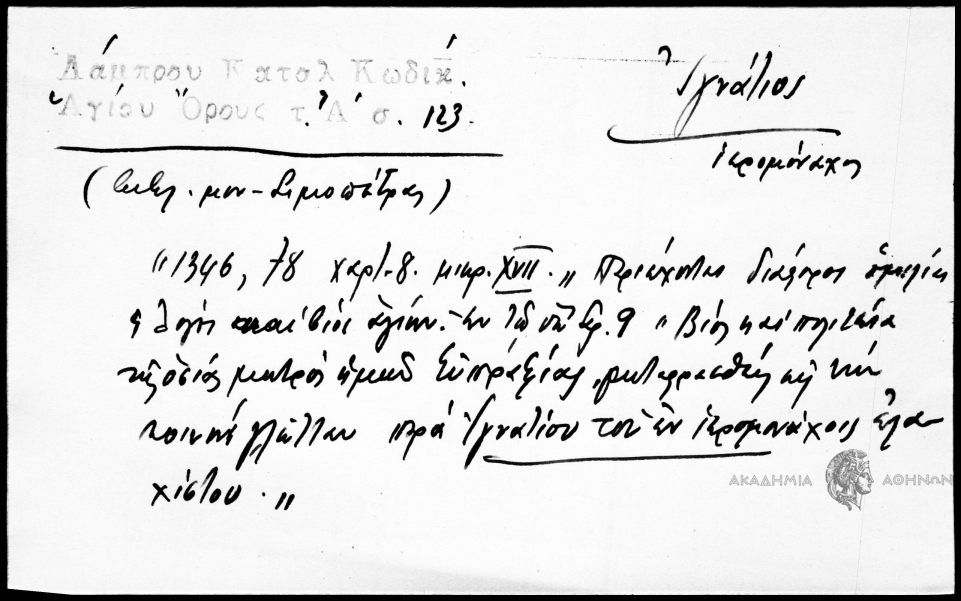 Λάμπρου Καταλ Κώδικ.
Ἁγίου Ὄρους τ. Α' σ. 123.
Ἰγνάτιος
ἱερομόναχος
( μον. Σιμοπέτρας )
"1346, 78 χαρτ. 8. μικρ. XVII. " Περιέχονται διάφοροι ὁμιλίαι
ἢ λόγοι καὶ βίοι ἁγίων. 9 " Βίος καὶ πολιτεία
τῆς ὁσίας μητρὸς ἡμῶν Εὐπραξίας, μεταφρασθεὶς εἰς τὴν
κοινὴν γλῶτταν παρὰ Ἰγνατίου τοῦ ἐν ἱερομονάχοις ἐλα-
χίστου. "
ΑΚΑΔΗΜΙΑ ΑΘΗΝΩΝ